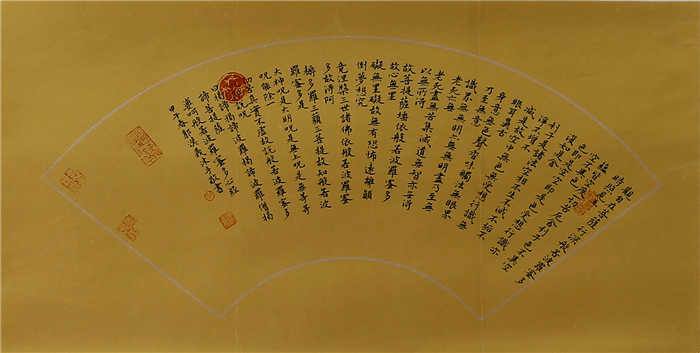 觀自在菩薩行深般若波羅蜜多
時照見五
蘊皆空度一切苦厄舍利子色不異空
空不異色
色即是空空即是色受想行識亦
復如是舍
利子是諸法空相不生不滅不垢不
淨不增不減
是故空中無色無受想行識無
眼耳鼻舌
身意無色聲香味觸法無眼界
乃至無意
識界無無明亦無無明盡乃至無
老死亦無
老死盡無苦集滅道無智亦無得
以無所得
故菩提薩埵依般若波羅蜜多
故心無罣
礙無罣礙故無有恐怖遠離顛
倒夢想究
竟涅槃三世諸佛依般若波羅蜜
多故得阿
耨多羅三藐三菩提故知般若波
羅蜜多是
大神咒是大明咒是無上咒是無等等
咒能除一
切苦真實不虛故說般若波羅蜜多
咒即說咒
曰揭諦揭諦波羅揭諦波羅僧揭
諦菩提薩
婆訶般若波羅蜜多心經
甲午春郭漢義沐手敬書